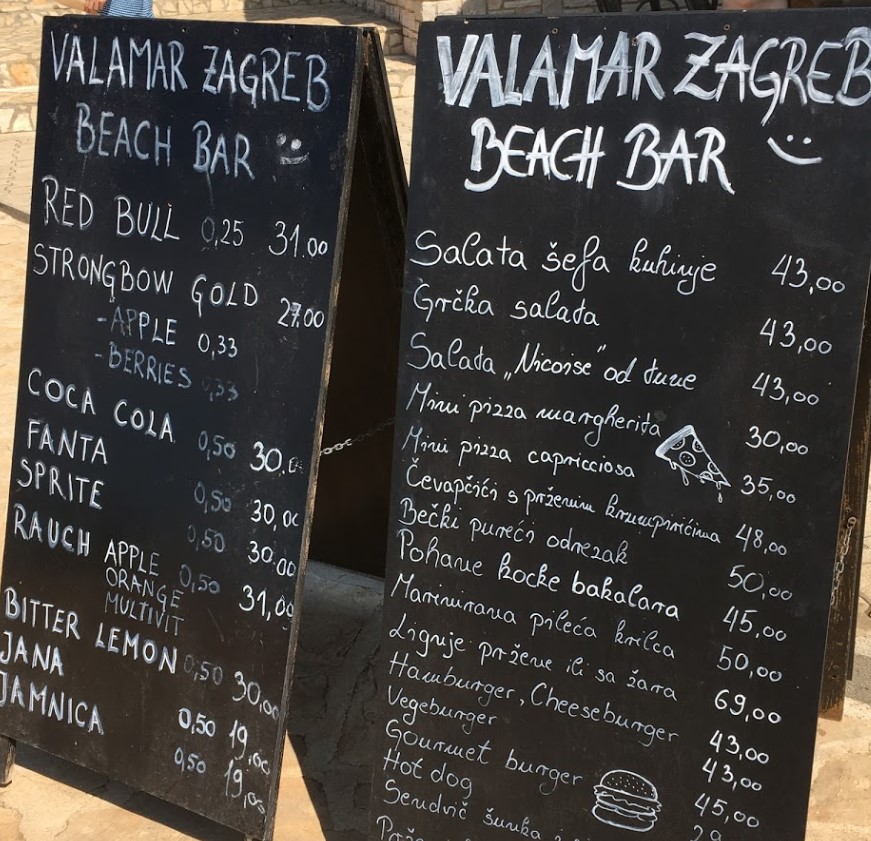 VALAMAR ZAGREB
BEACH BAR
RED BULL 0,25 31.00
STRONGBOW GOLD 27.00
-APPLE 0,33
-BERRIES 0,33
COCA COLA 0,50 30.0
FANTA 0,50 30,00
SPRITE 0,50 30.00
RAUCH APPLE 0,50 31,00
ORANGE
MULTIVIT
BITTER LEMON 0,50 30,00
JANA 0,50 19,00
JAMNICA 0,50 19,00
VALAMAR ZAGREB
BEACH BAR
Salata šefa kuhinje 43,00
Grčka salata 43,00
Salata „Nicoise" od tune 43,00
Mini pizza margherita 30,00
Mini pizza capricciosa 35,00
Čevapčići s prženim krumpirićima 48,00
Bečki pureći odrezak 50,00
Pohane kocke bakalara 45,00
Marinirana pileća krilca 50,00
Lignje pržene ili sa žara 69,00
Hamburger, Cheeseburger 43,00
Vegeburger 43,00
Gourmet burger 45,00
Hot dog
Sendvič šunka